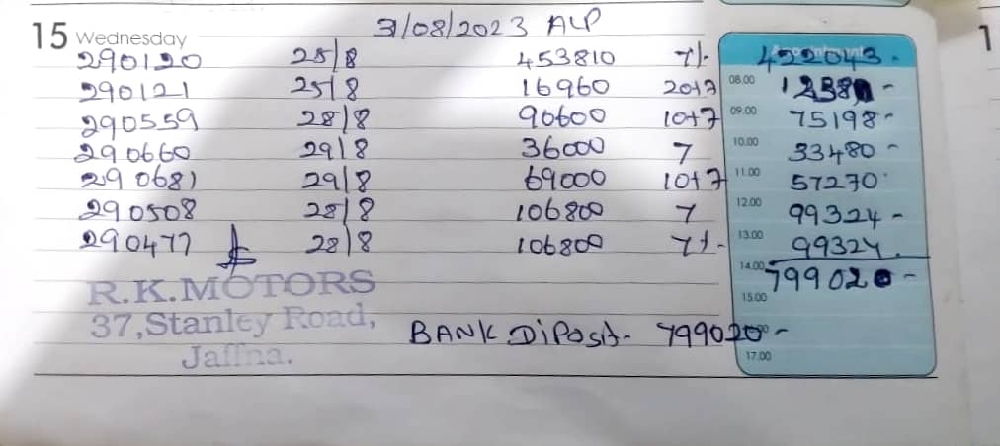 3/08/2023 ALP
15 Wednesday
290120 25/8 453810 7% 422043 -
290121 25/8 16960 20+7 08.00 12381 -
290559 28/8 90600 10+7 09.00 75198 -
290660 29/8 36000 7 10.00 33480 -
290681 29/8 69000 10+7 11.00 57270
290508 28/8 106800 7 12.00 99324 -
290477 28/8 106800 7% 13.00 99324
14.00 799020 -
R.K.MOTORS
15.00
37,Stanley Road,
BANK Diposit - 799020 -
Jaffna.
17.00